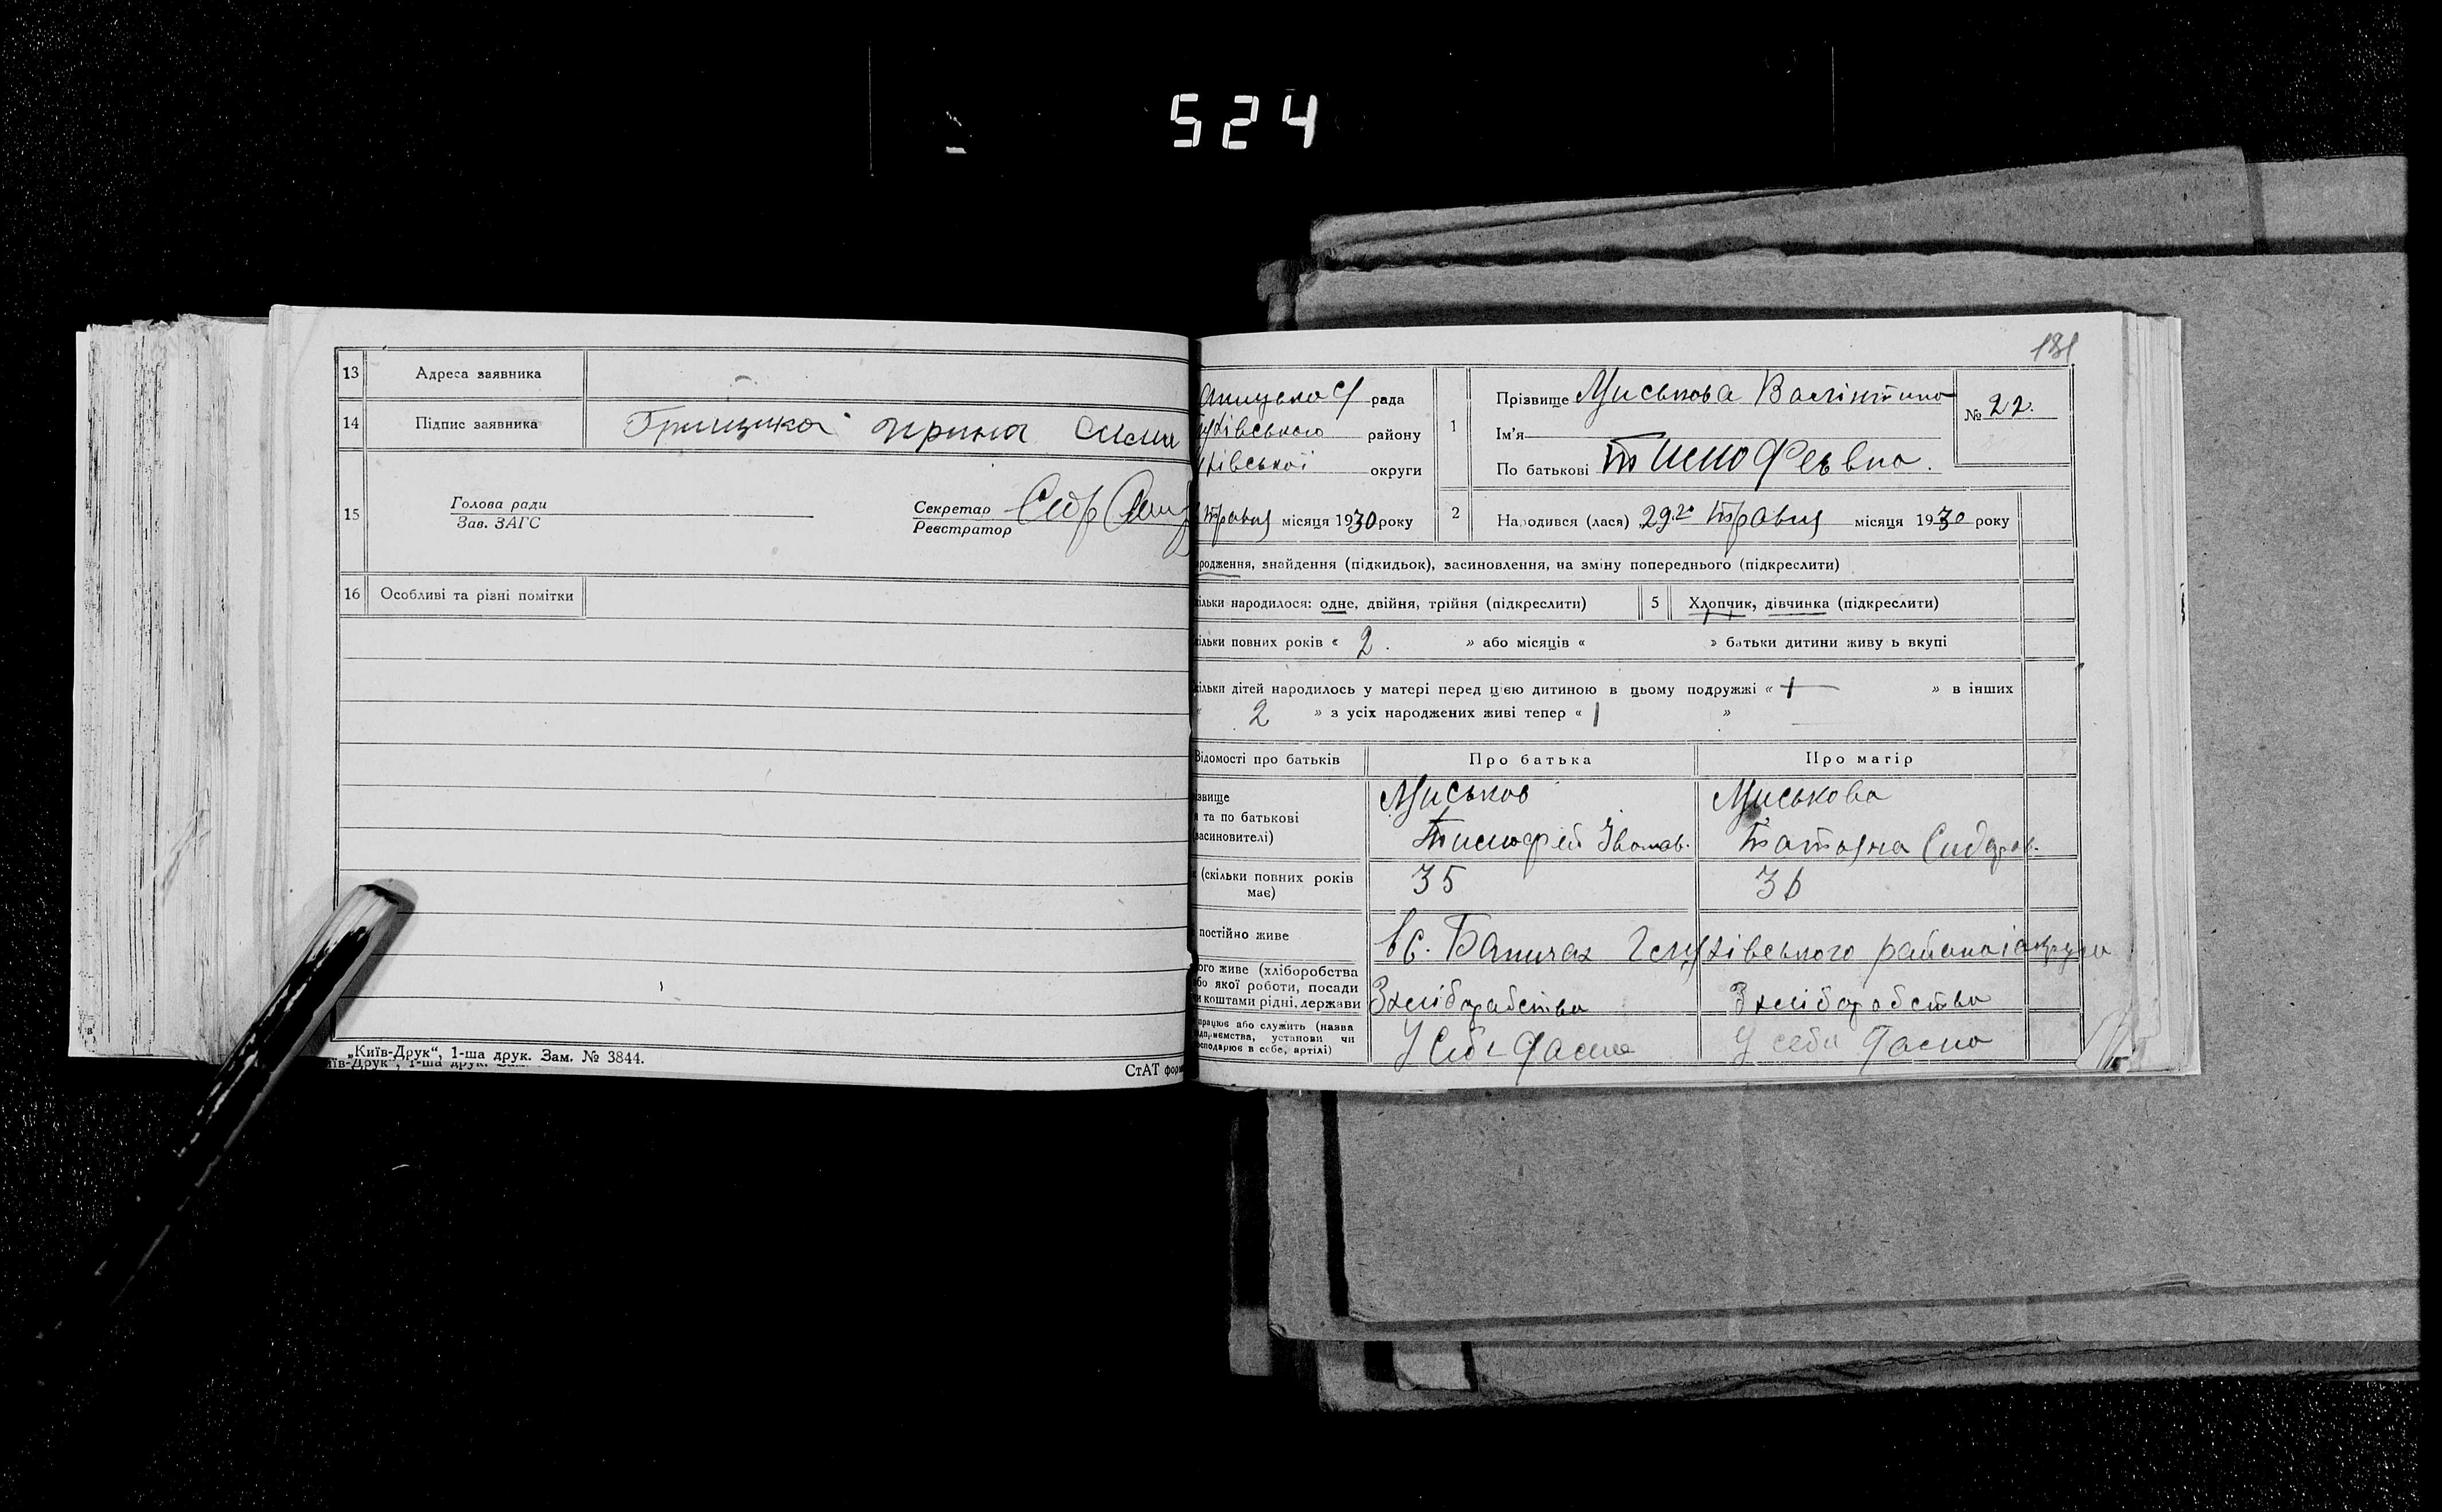 524
13 Адреса заявника
14 Підпис заявника Грицика
15
Голова ради
Зав. ЗАГС
Секретар
Реєстратор
16 Особливі та різні помітки
„Київ-Друк“, 1-ша друк. Зам. № 3844.
СтАТ фор
181
рада
району
округи
травня місяця 1930 року
1 Прізвище Миськова Валінтина
Ім'я
По батькові Тимофеевна.
№ 22.
2 Народився (лася) 29го травня місяця 1930 року
родження, знайдення (підкидьок), засиновлення, на зміну попереднього (підкреслити)
ільки народилося: одне, двійня, трійня (підкреслити) 5 Хлопчик, дівчинка (підкреслити)
ільки повних років « 2. » або місяців « » батьки дитини живу ь вкупі
ільки дітей народилось у матері перед цією дитиною в цьому подружжі « 1 » в інших
« 2 » з усіх народжених живі тепер « 1 »
Відомості про батьків Про батька Про матір
звище
та по батькові
засиновителі)
Миськов
Тимофей Іванов.
Миськова
Татояна Сидоров.
(скільки повних років
має)
35 36
постійно живе в с. Баничах Глухівського району і округи
ого живе (хліборобства
бо якої роботи, посади
и коштами рідні, держави
З хліборобства З хліборобства
працює або служить (назва
підприємства, установи чи
господарює в себе, артілі)
У себе У себе